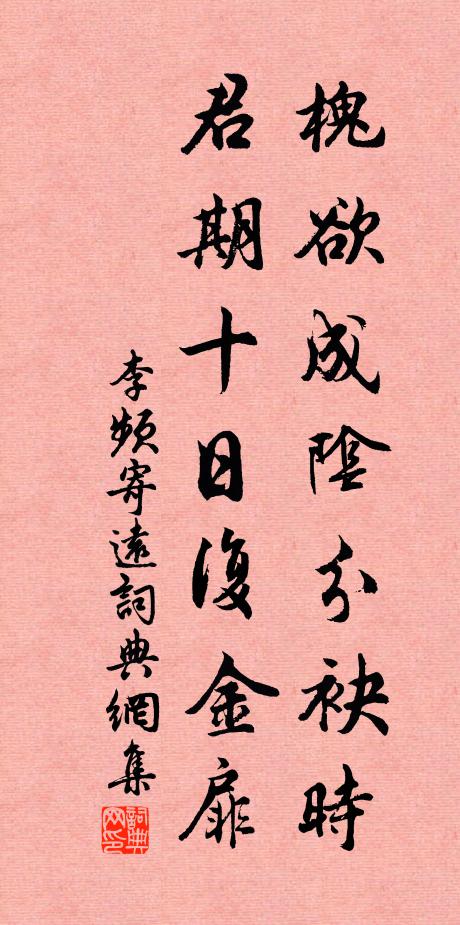 槐欲成陰分袂時
君期十日復金扉
李頻寄遠詞典網集
詞典网印